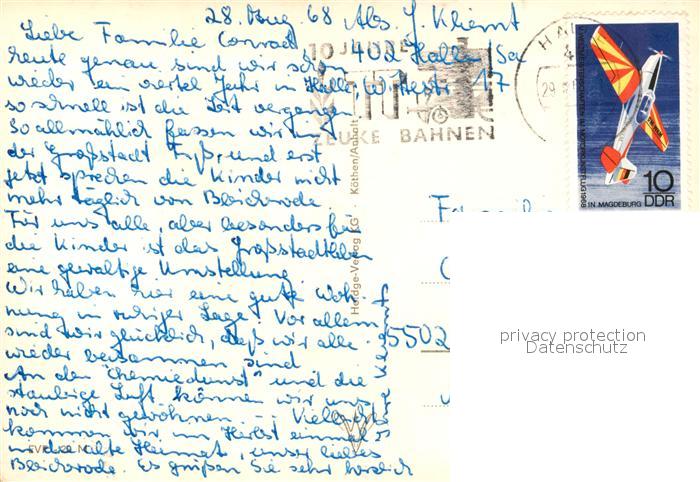 28. Aug. 68 Abs. J. Klient
402 Halle/Sa
Liebe Familie Conrad
heute genau sind wir schon
wieder ein viertel Jahr in Halle,
so schnell ist die Zeit vergangen.
So allmählich fassen wir in
der Großstadt Fuß, und erst
jetzt sprechen die Kinder nicht
mehr täglich von Bleicherode.
Für uns alle, aber besonders für
die Kinder ist das Großstadtleben
eine gewaltige Umstellung.
Wir haben hier eine gute Woh-
nung in ruhiger Lage. Vor allem
sind wir glücklich, daß wir alle
wieder beisammen sind
An den "Chemiedunst" und die
staubige Luft können wir uns
noch nicht gewöhnen. Vielleicht
kommen wir im Herbst einmal
in die alte Heimat, unser liebes
Bleicherode. Es grüßen Sie sehr herzlich
10 JAHRE
TT
ZEUKE BAHNEN
HAL
4
29
10
DDR
IN MAGDEBURG
Köthen/Anhalt
5502
privacy protection
Datenschutz